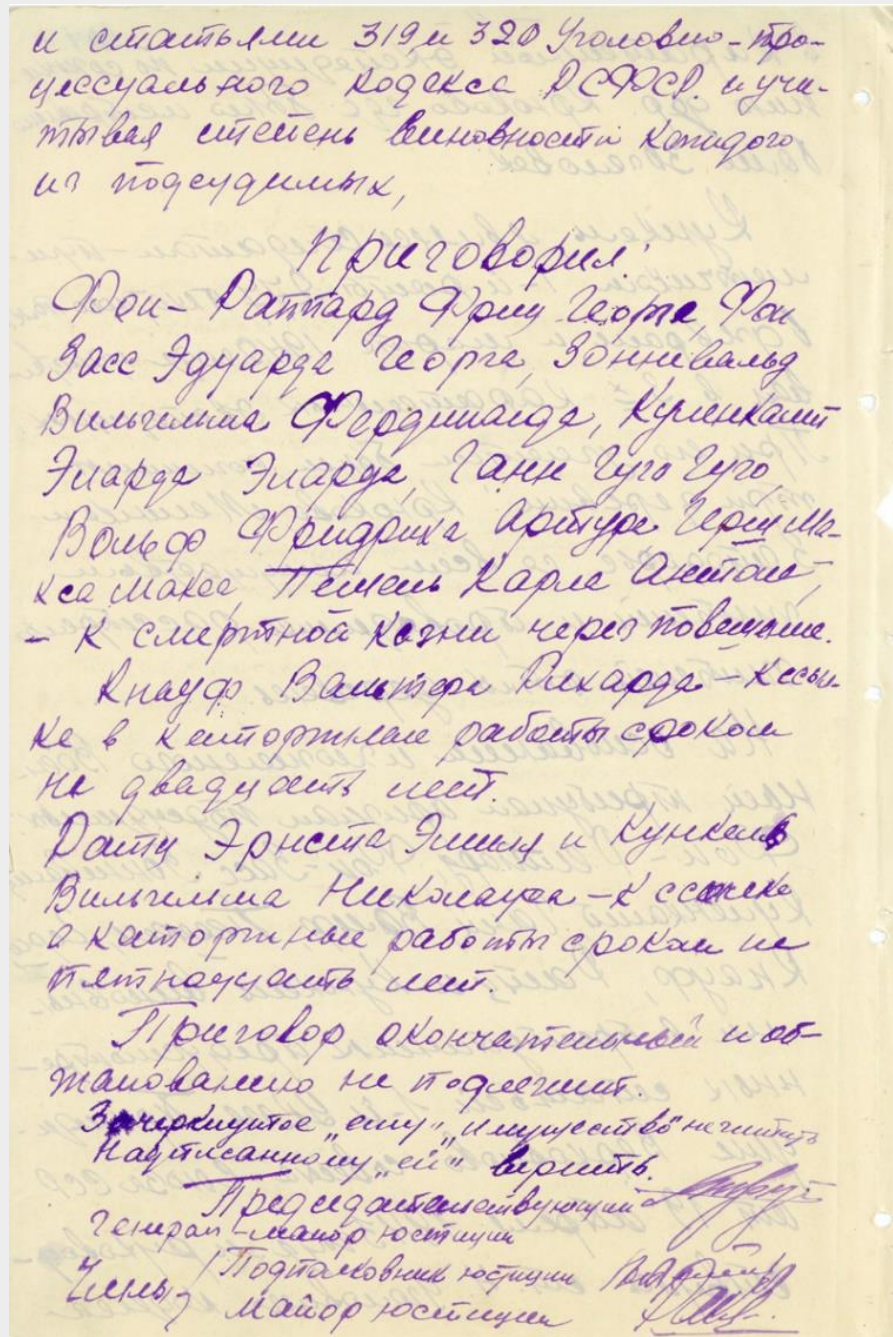 и статьями 319 и 320 Уголовно-про-
цессуального Кодекса РСФСР и учи-
тывая степень виновности каждого
из подсудимых,
Приговорил:
Фон-Раппард Фриц Георга, Фон
Засс Эдуарда Георга, Зонневальд
Вильгельма Фердинанда, Кюленкампф
Эларда Эларда, Ганн Гуго Гуго,
Вольф Фридриха Артура Герм Ма-
кса Макса, Пемель Карла Антона,
- к смертной казни через повешение.
Кнауф Вальтера Рихарда - к ссыл-
ке в каторжные работы сроком
на двадцать лет.
Ратц Эрнста Эмиля и Кункель
Вильгельма Николауса - к ссылке
в каторжные работы сроком на
пятнадцать лет.
Приговор окончательный и об-
жалованию не подлежит.
Зачеркнутое „ему", „имущество" не читать
Надписанному „ей" верить.
Председательствующий
генерал-майор юстиции
Члены Подполковник юстиции
майор юстиции